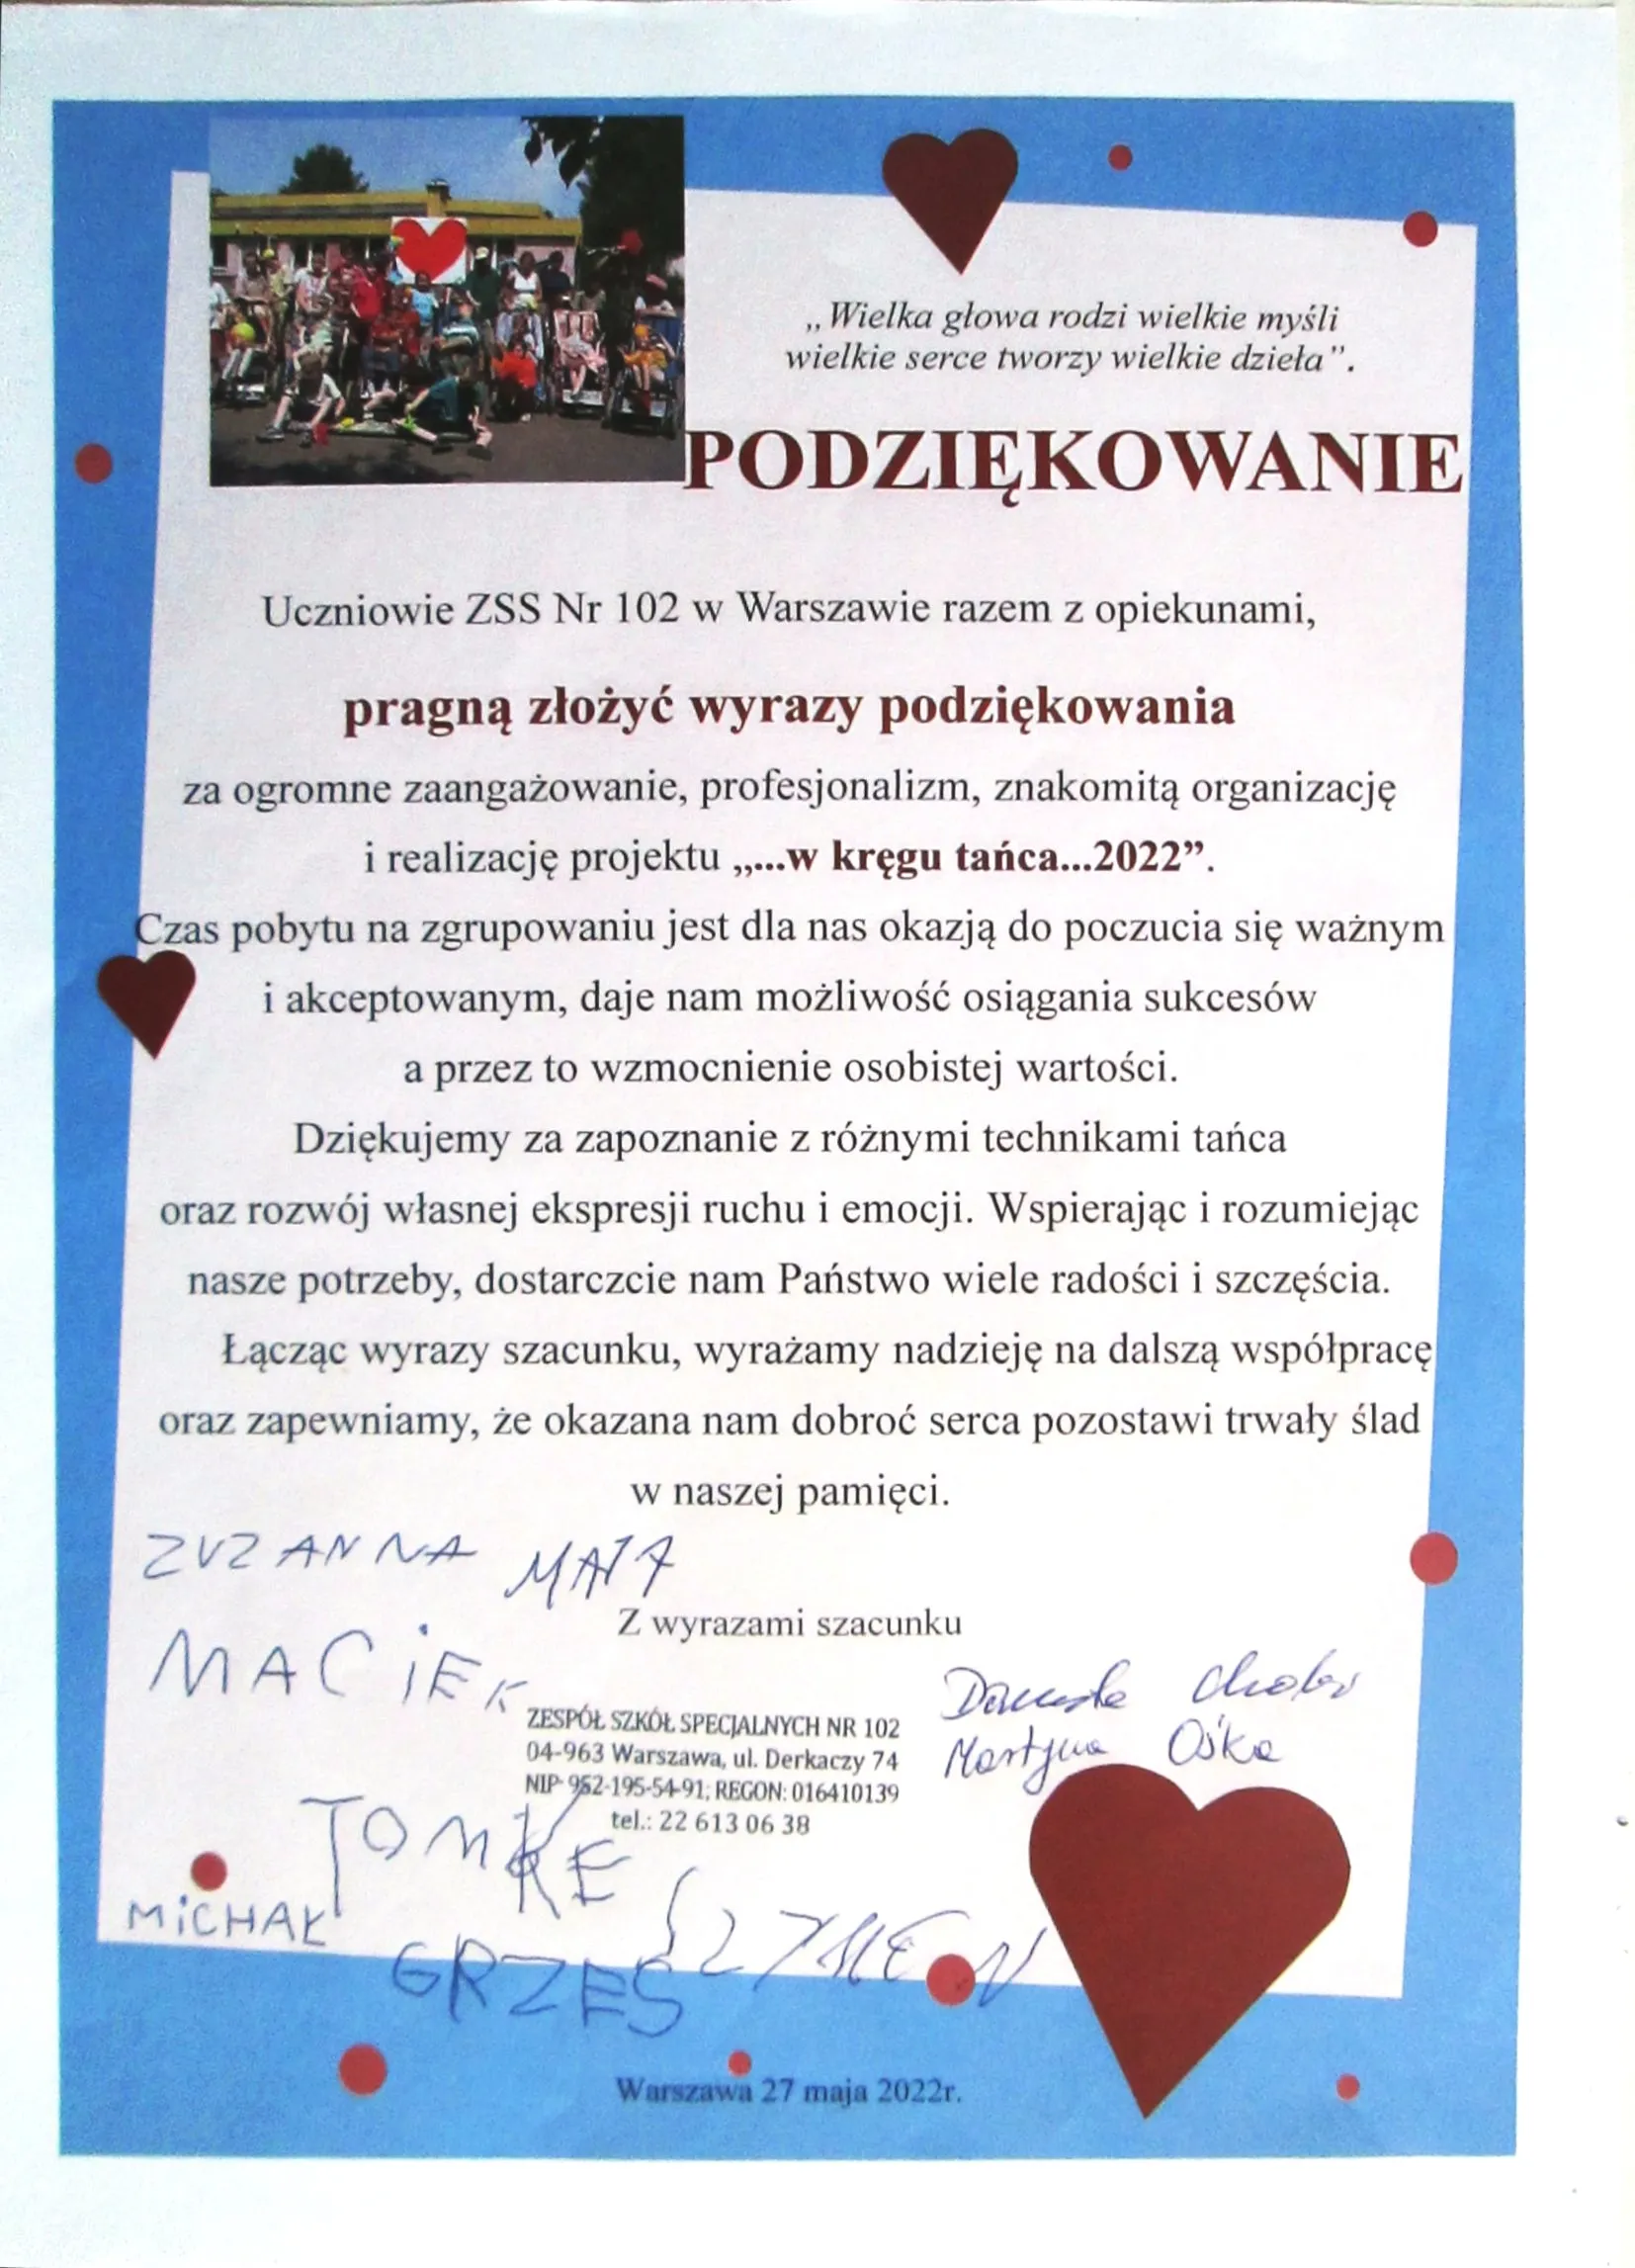 „Wielka głowa rodzi wielkie myśli
wielkie serce tworzy wielkie dzieła”.
PODZIĘKOWANIE
Uczniowie ZSS Nr 102 w Warszawie razem z opiekunami,
pragną złożyć wyrazy podziękowania
za ogromne zaangażowanie, profesjonalizm, znakomitą organizację
i realizację projektu „...w kręgu tańca...2022”.
Czas pobytu na zgrupowaniu jest dla nas okazją do poczucia się ważnym
i akceptowanym, daje nam możliwość osiągania sukcesów
a przez to wzmocnienie osobistej wartości.
Dziękujemy za zapoznanie z różnymi technikami tańca
oraz rozwój własnej ekspresji ruchu i emocji. Wspierając i rozumiejąc
nasze potrzeby, dostarczcie nam Państwo wiele radości i szczęścia.
Łącząc wyrazy szacunku, wyrażamy nadzieję na dalszą współpracę
oraz zapewniamy, że okazana nam dobroć serca pozostawi trwały ślad
w naszej pamięci.
ZUZANNA
Z wyrazami szacunku
MACiEK
Danuta
Martyna Ośka
ZESPÓŁ SZKÓŁ SPECJALNYCH NR 102
04-963 Warszawa, ul. Derkaczy 74
NIP 952-195-54-91; REGON: 016410139
tel.: 22 613 06 38
MiCHAŁ
GRZEŚ
SZYMEN
Warszawa 27 maja 2022r.